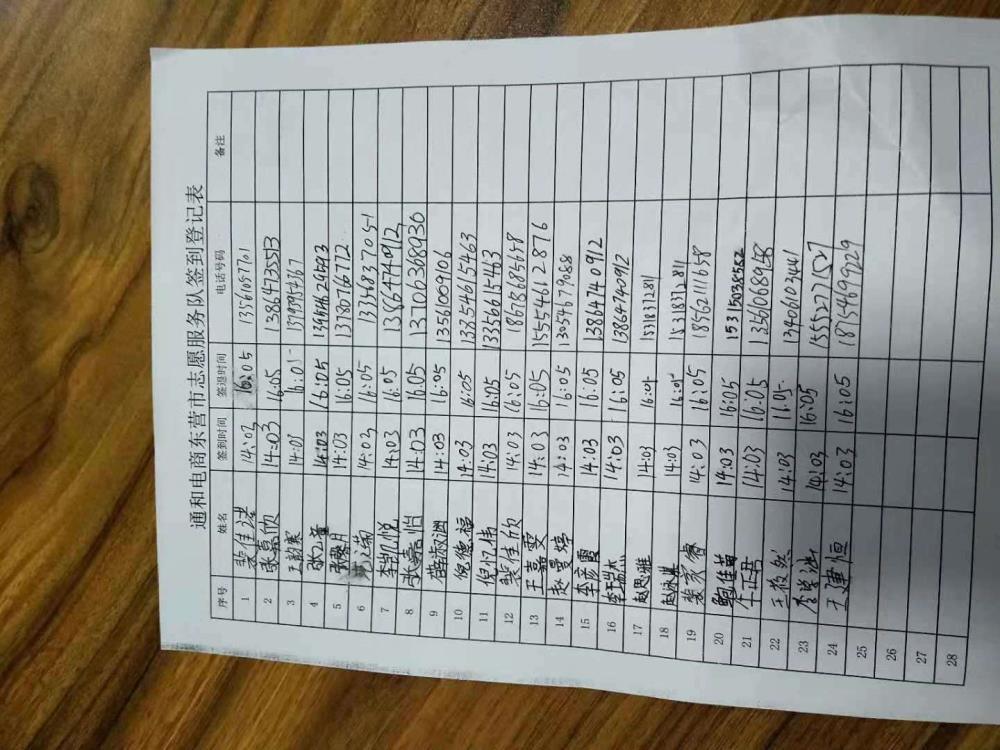 通和电商东营市志愿服务队签到登记表
序号 姓名 签到时间 签退时间 电话号码 备注
1 裴佳洪 14:03 16:05 13561097701
2 张嘉欣 14:03 16:05 13864735513
3 王韵寒 14:03 16:05 13793994767
4 14:03 16:05 13954624593
5 张馨月 14:03 16:05 13780767712
6 14:03 16:05 13346837051
7 李凯悦 14:03 16:05 13864740912
8 张嘉怡 14:03 16:05 13706368930
9 薛淑泗 14:03 16:05 13561009106
10 倪德福 14:03 16:05 13854615463
11 倪忆伟 14:03 16:05 13356615463
12 裴佳欣 14:03 16:05 18678685658
13 王嘉雯 14:03 16:05 15554612876
14 赵曼婷 14:03 16:05 13054679088
15 李彦霞 14:03 16:05 13864740912
16 李瑞杰 14:03 16:05 13864740912
17 赵思雅 14:03 16:05 15318372811
18 赵泳淇 14:03 16:05 15318372811
19 裴家睿 14:03 16:05 18562111658
20 鲍佳苗 14:03 16:05 15315038582
21 14:03 16:05 13561068958
22 王筱然 14:03 16:05 13406103441
23 李学浩 14:03 16:05 15552777527
24 王建恒 14:03 16:05 18754699229
25
26
27
28